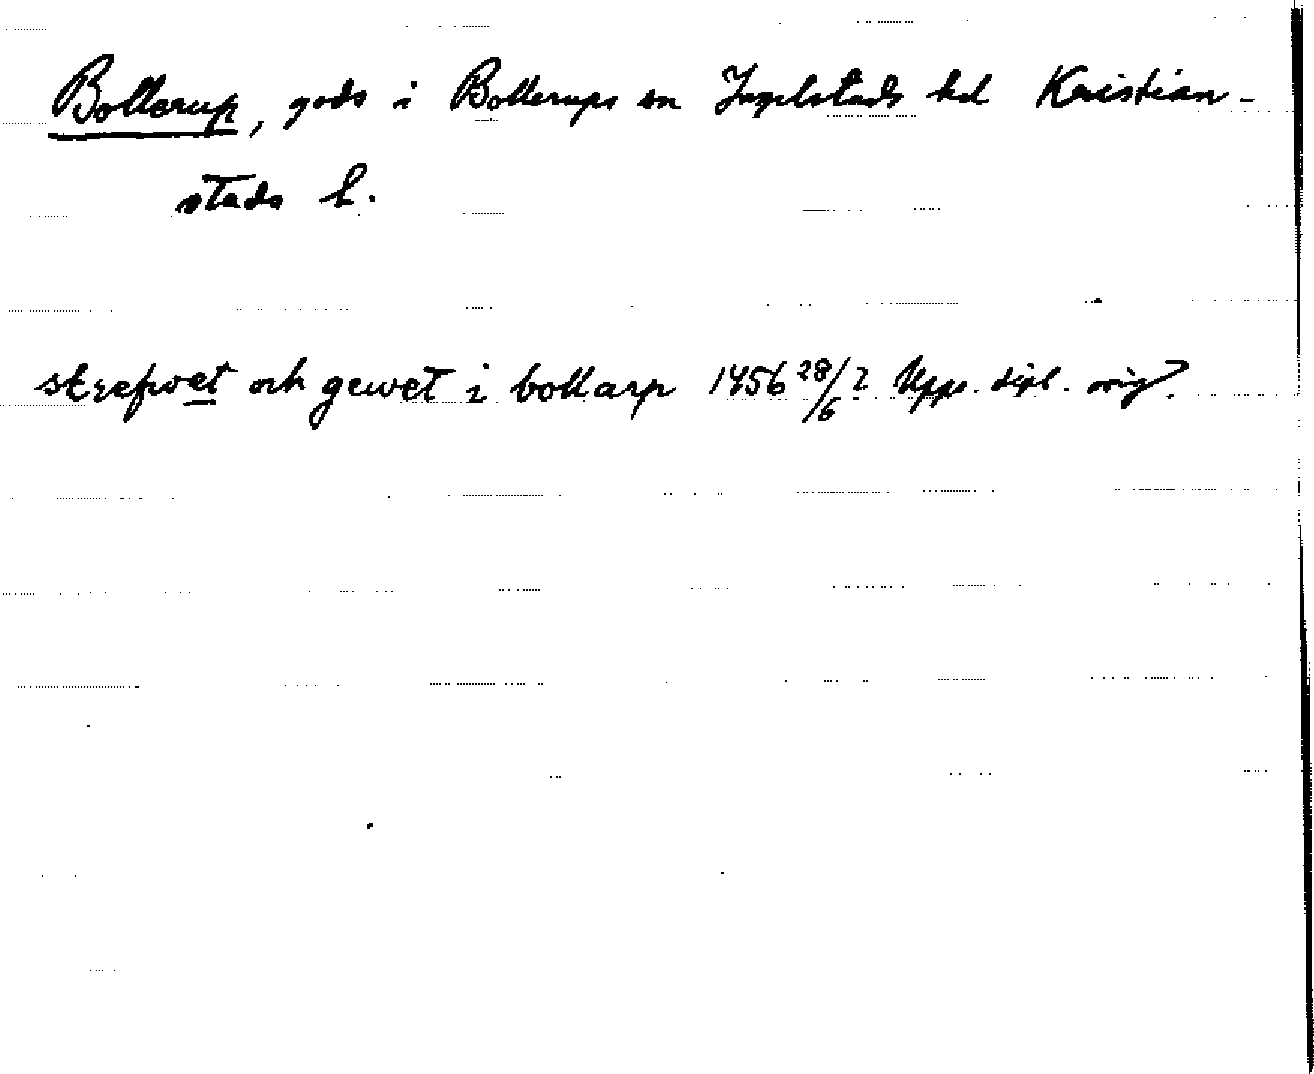 Bollerup, gods i Bollerups sn Ingelstads hd Kristian-
stads l.
skrefwet och gewet i bollarp 1456 28/6 ? Upps. dipl. orig.